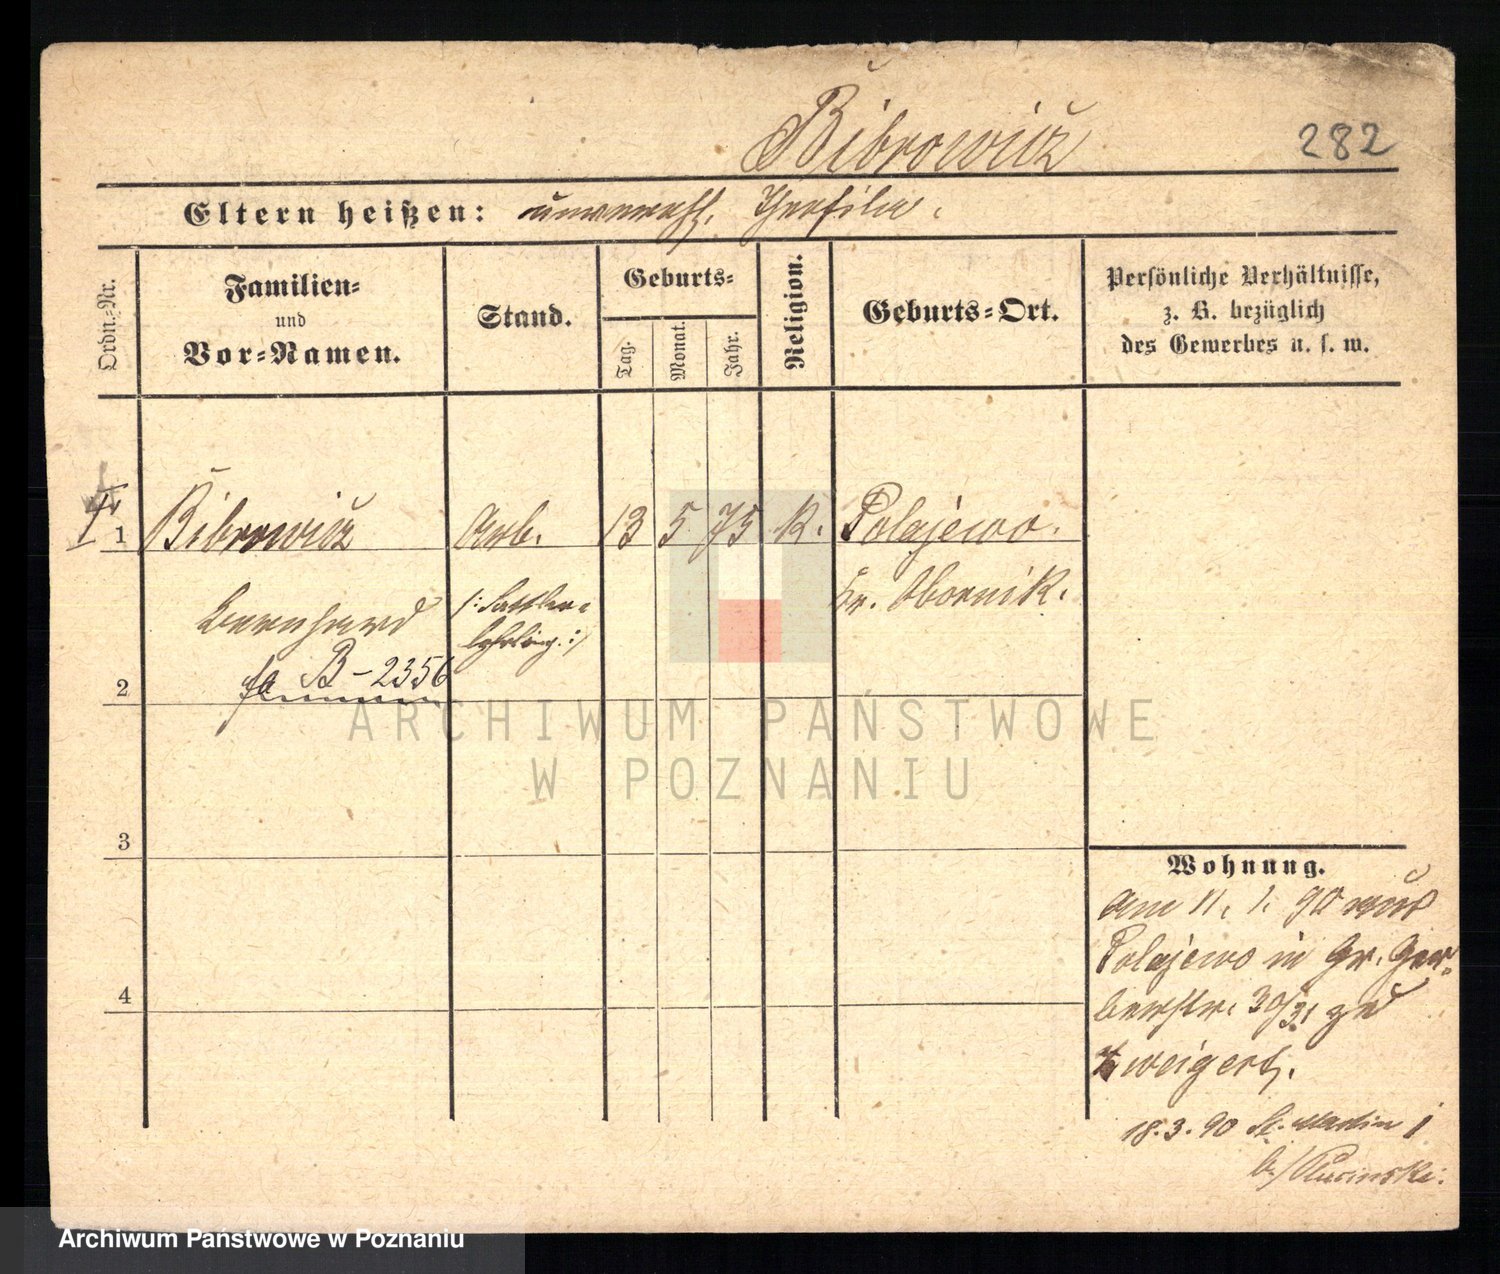 Bibrowicz
282
Eltern heißen: unvereh. Theofila.
Ordn.-Nr.
Familien-
und
Vor-Namen.
Stand.
Geburts-
Tag.
Monat.
Jahr.
Religion.
Geburts-Ort.
Persönliche Verhältnisse,
z. B. bezüglich
des Gewerbes u. s. w.
1 Bibrowicz Arb. 13 5 75 K. Polajewo.
Bernhard (: Sattler- Kr. Obornik.
lehrling. :)
B-2356
2
3
4
Wohnung.
Am 11. 1. 90 aus
Polajewo in Gr. Ger-
berstr. 30/31 zu
Zweigert.
18.3.90 St. Martin 1
b/
ARCHIWUM PAŃSTWOWE
W POZNANIU
Archiwum Państwowe w Poznaniu